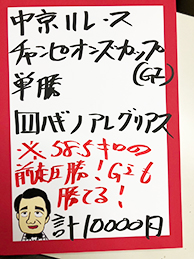 中京11レース
チャンピオンズカップ
(GI)
単勝
回ハギノアレグリアス
※58.5キロの
前走圧勝!GIも
勝てる!
計10000円